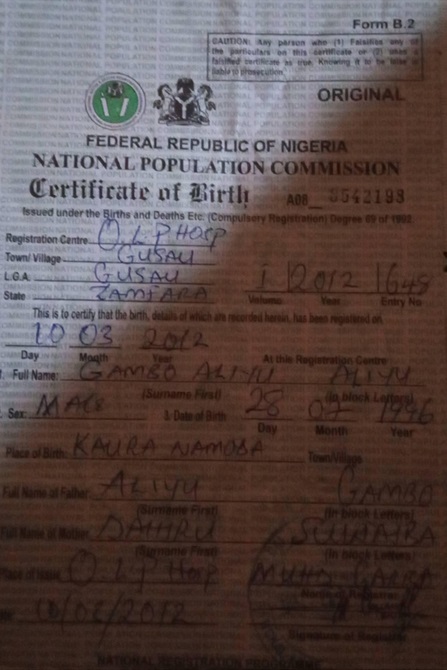 Form B.2
CAUTION: Any person who (1) Falsifies any of
the particulars on this certificate or (2) uses a
falsified certificate as true, Knowing it to be false is
liable to prosecution.
ORIGINAL
FEDERAL REPUBLIC OF NIGERIA
NATIONAL POPULATION COMMISSION
Certificate of Birth
Issued under the Births and Deaths Etc. (Compulsory Registration) Degree 69 of 1992.
Registration Centre O.L.P Hosp
Town/Village GUSAU
L.G.A. GUSAU 1 2012 1649
State ZAMFARA Volume Year Entry No
This is to certify that the birth, details of which are recorded herein, has been registered on
10 03 2012
Day Month Year At this Registration Centre
Full Name: GAMBO ALIYU ALIYU
(Surname First) (in block Letters)
Sex: MALE Date of Birth 28 07 1996
Day Month Year
Place of Birth: KAURA NAMODA Town/Village
Full Name of Father ALIYU GAMBO
(Surname First) (in block Letters)
Full Name of Mother
(Surname First) (in block Letters)
Place of Issue O.L.P Hosp MUHD
Signature of Registrar